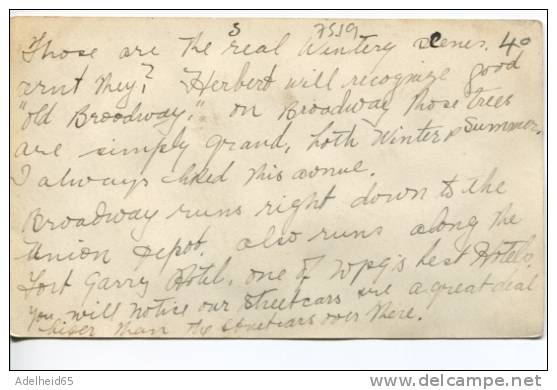 S 7519
Those are the real Wintery Scenes. 40
arnt they? Herbert will recognize good
"old Broadway." on Broadway those trees
are simply grand, both Winter & Summer.
I always liked this avnue.
Broadway runs right down to the
Union Depot. also runs along the
Fort Garry Hotel, one of Wpg's best Hotels.
you will notice our streetcars are a great deal
nicer than the streetcars over there.
Adelheid65
delcampe.net